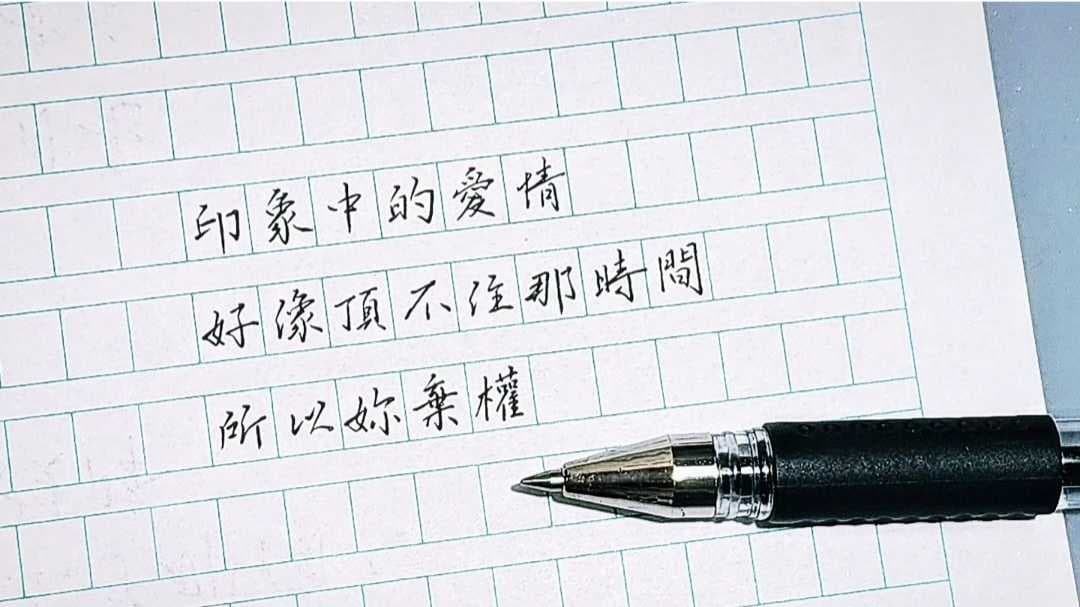 印象中的愛情
好像頂不住那時間
所以妳棄權